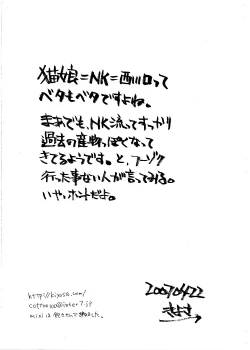 猫娘=NK=西川口って
ベタもベタですよね。
まあでも、NK流ってすっかり
過去の産物っぽくなって
きてるようです。と、フーゾク
行った事ない人が言ってみる。
いや、ホントだよ。
2007.04.22
きよさ
http://kiyosa.com/
mixiは